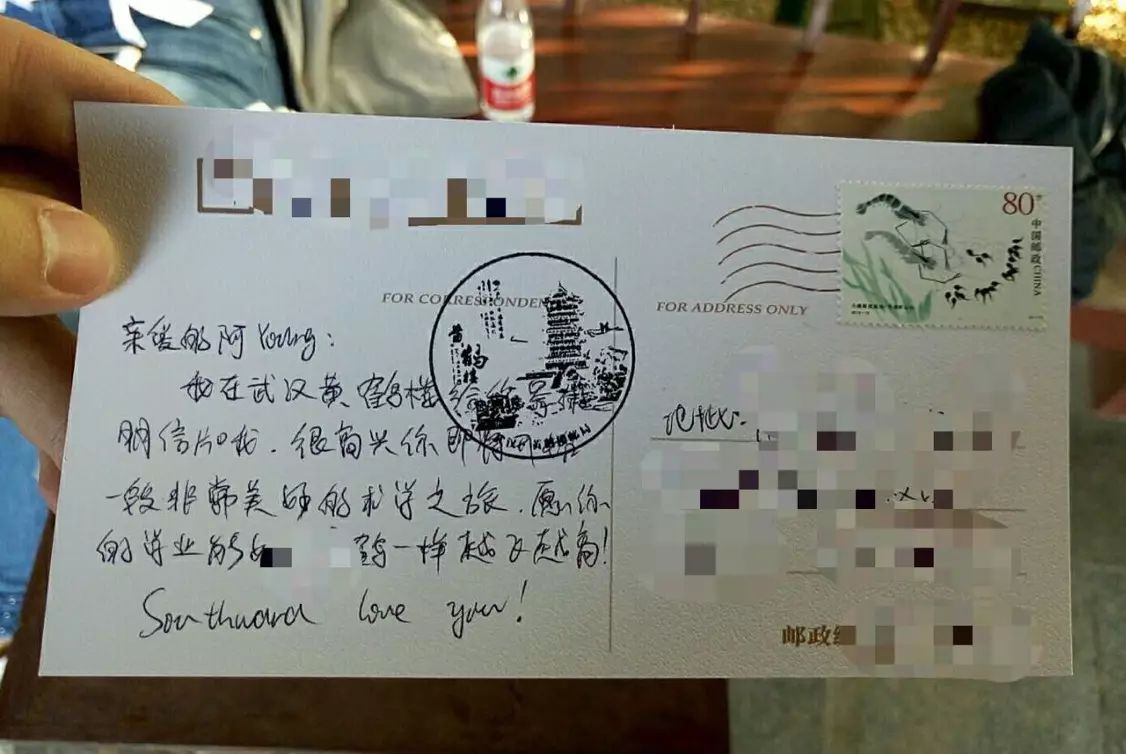 FOR CORRESPONDEN
FOR ADDRESS ONLY
80
中国邮政 CHINA
黄鹤楼
亲爱的阿Young:
我在武汉黄鹤楼给你寄
明信片哦.很高兴你即将
一段非常美好的求学之旅.愿你
的学业能 鹤一样越飞越高!
Southward love you!
地址:
邮政